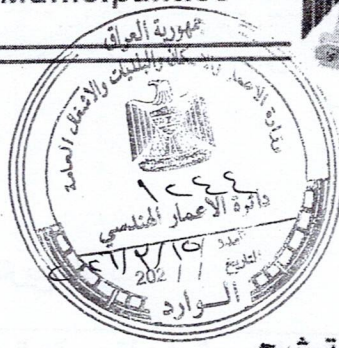 جمهورية العراق
وزارة الاعمار والاسكان والبلديات والاشغال العامة
١٢٤٤
دائرة الأعمار الهندسي
العدد
التاريخ / / 202
الـوارد